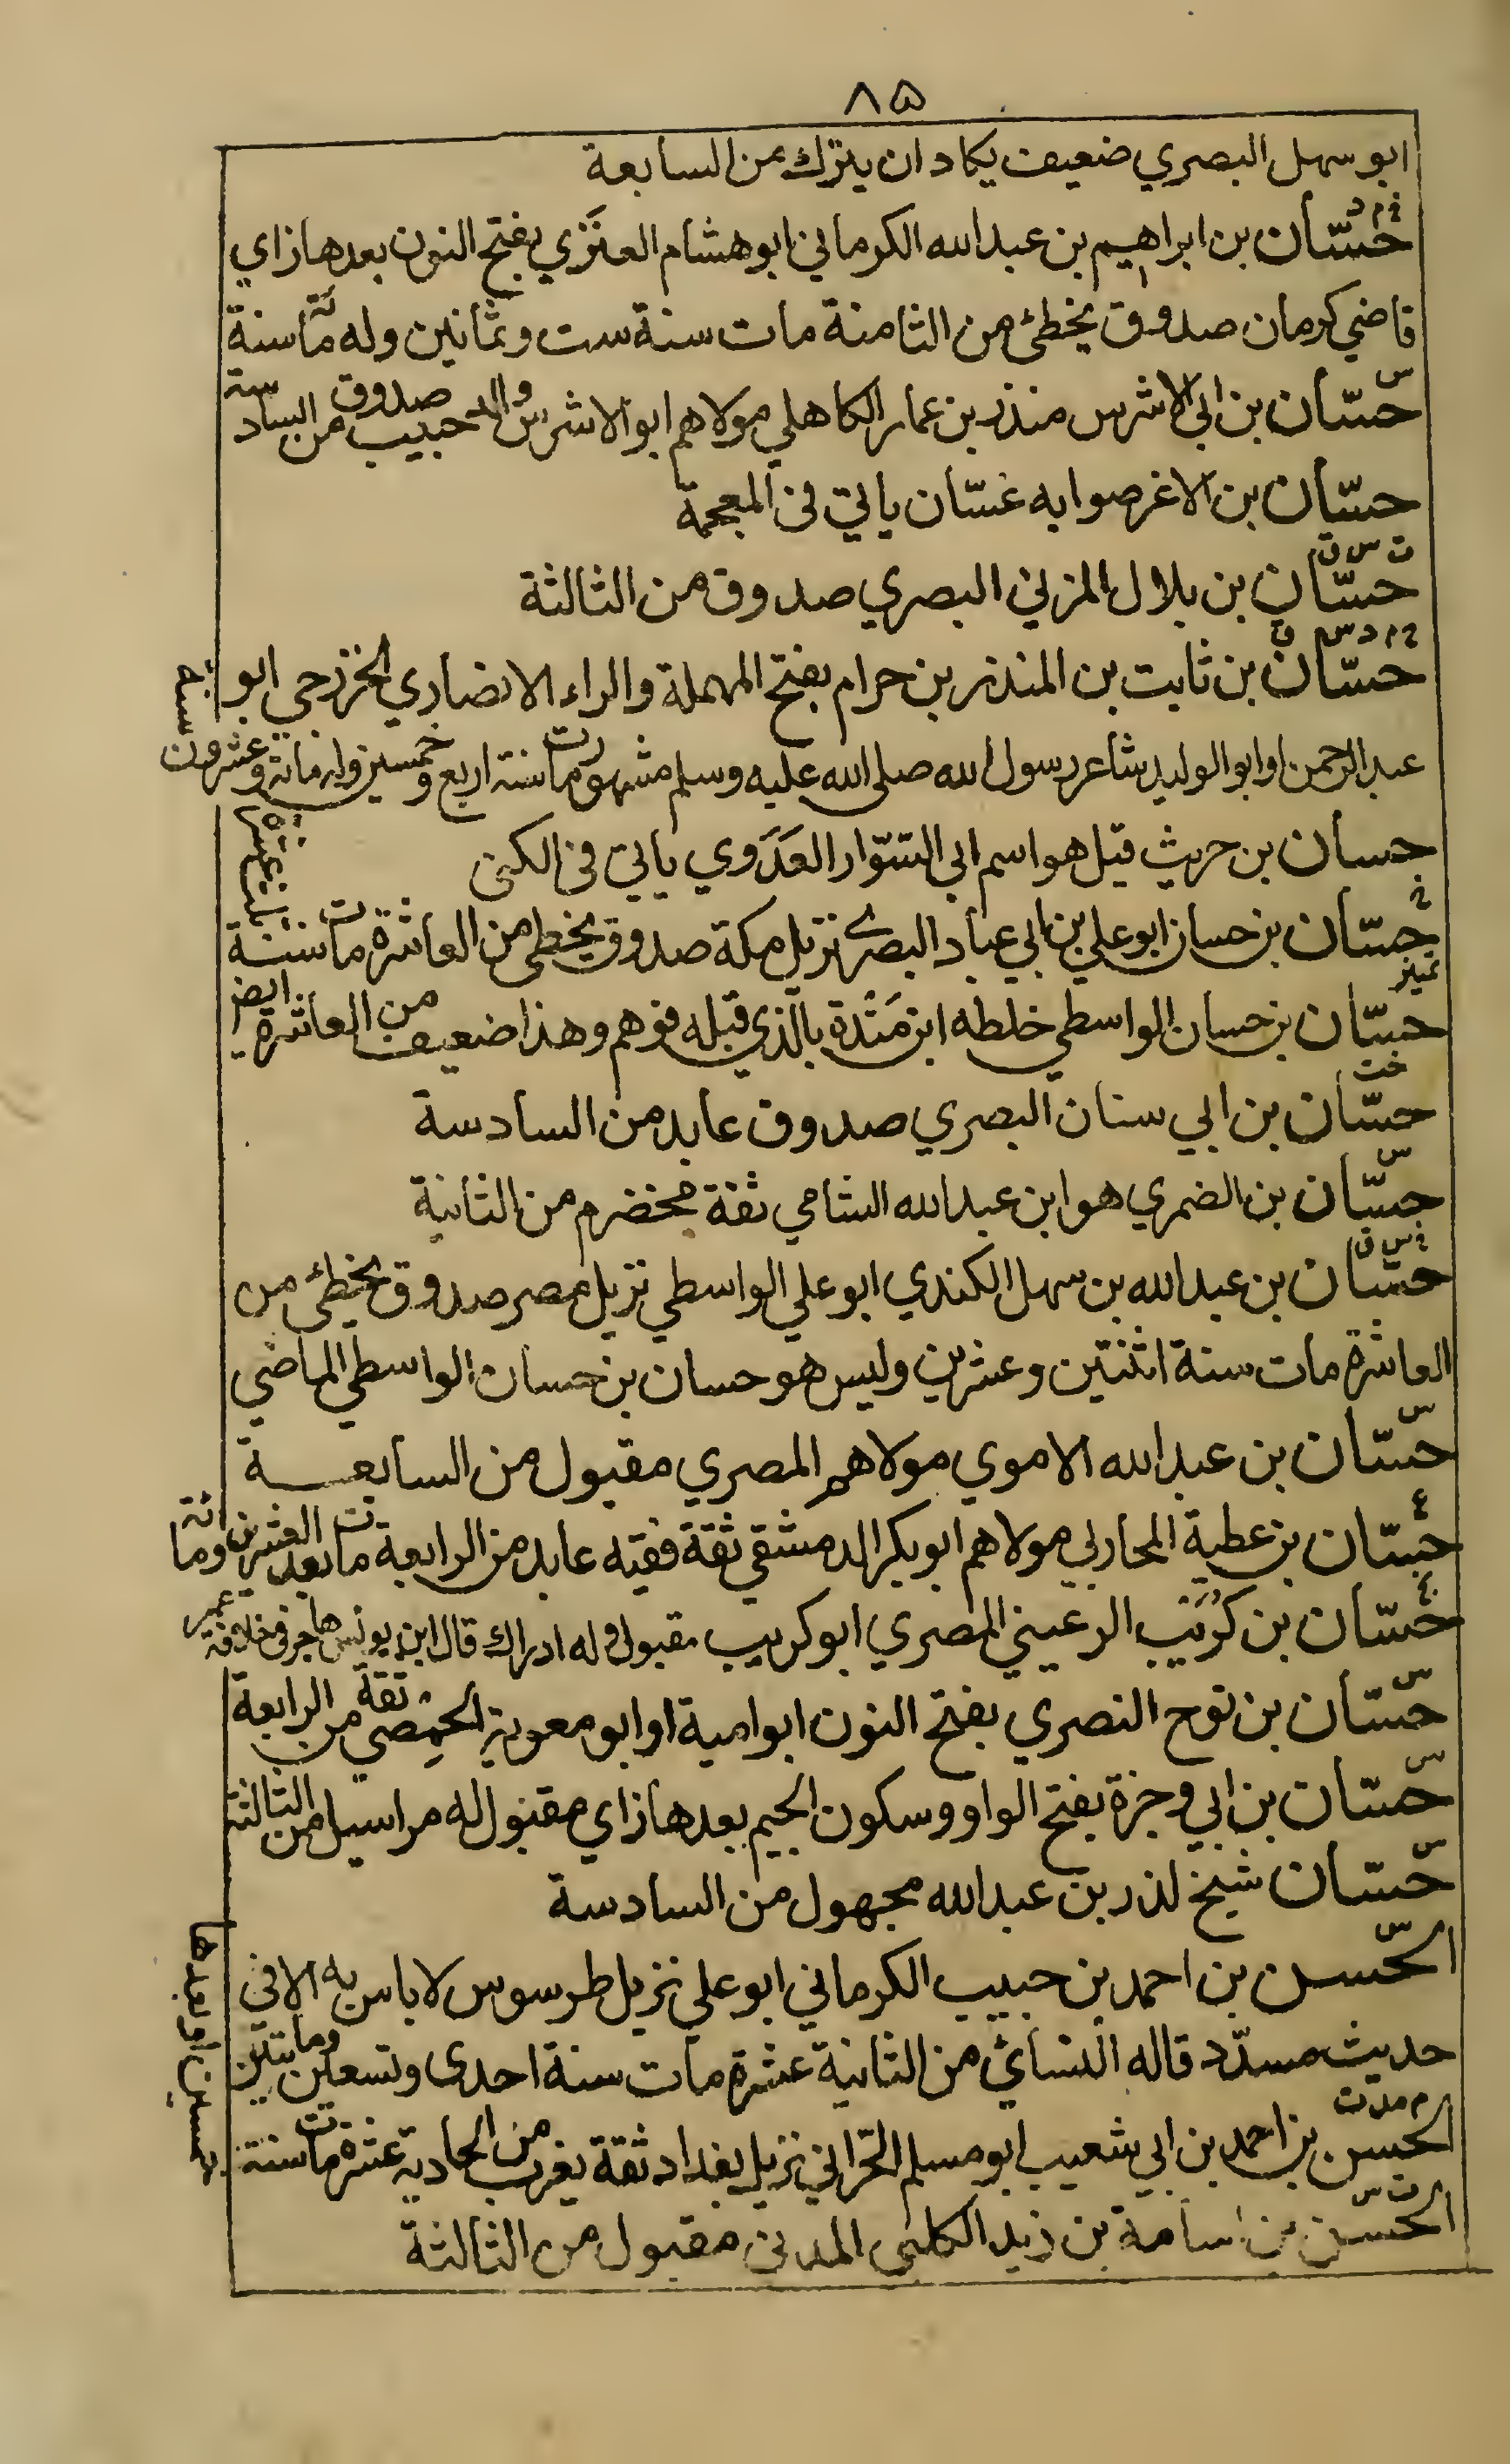 ٨٥
ابو سهل البصري ضعيف يكاد ان يترك من السابعة
خ م د
حسّان بن ابراهيم بن عبد الله الكرماني ابو هشام العنَزي بفتح النون بعدها زاي
قاضي كرمان صدوق يخطئ من الثامنة مات سنة ست وثمانين وله مائة سنة
س
حسّان بن ابي الاشرس منذر بن عمار الكاهلي مولاهم ابو الاشرس والد حبيب صدوق من السادسة
حسّان بن الاغر صوابه غسّان ياتي في المعجمة
ت س ق
حسّان بن بلال المزني البصري صدوق من الثالثة
خ م د س ق
حسّان بن ثابت بن المنذر بن حرام بفتح المهملة والراء الانصاري الخزرجي ابو
عبد الرحمن او ابو الوليد شاعر رسول الله صلى الله عليه وسلم مشهور مات سنة اربع وخمسين وله مائة وعشرون
سنة
حسان بن حريث قيل هو اسم ابي السّوّار العَدَوي ياتي في الكنى
خ
حسّان بن حسان ابو علي بن ابي عباد البصري نزيل مكة صدوق يخطئ من العاشرة مات سنة
ثلث عشرة
تمييز
حسّان بن حسان الواسطي خلطه ابن مَنْدة بالّذي قبله فوهم وهذا ضعيف من العاشرة ايض
خت
حسّان بن ابي سنان البصري صدوق عابد من السادسة
س
حسّان بن الضمري هو ابن عبد الله الشامي ثقة مخضرم من الثانية
خ س ق
حسّان بن عبد الله بن سهل الكندي ابو علي الواسطي نزيل مصر صدوق يخطئ من
العاشرة مات سنة اثنتين وعشرين وليس هو حسان بن حسان الواسطي الماضي
س
حسّان بن عبد الله الاموي مولاهم المصري مقبول من السابعة
ع
حسّان بن عطية المحاربي مولاهم ابو بكر الدمشقي ثقة فقيه عابد من الرابعة مات بعد العشرين ومائة
حسّان بن كُرَيب الرعيني المصري ابو كريب مقبول وله ادراك قال ابن يونس هاجر في خلافة عمر
س
حسّان بن نوح النصري بفتح النون ابو امية او ابو معوية الحمصي ثقة من الرابعة
س
حسّان بن ابي وجزة بفتح الواو وسكون الجيم بعدها زاي مقبول له مراسيل من الثالثة
س
حسّان شيخ لذر بن عبد الله مجهول من السادسة
س
الحسن بن احمد بن حبيب الكرماني ابو علي نزيل طرسوس لا باس به الا في
حديث مسدّد قاله النسائي من الثانية عشرة مات سنة احدى وتسعين ومايتين
م مد ت
الحسن بن احمد بن ابي شعيب ابو مسلم الحرّاني نزيل بغداد ثقة يغرب من الحادية عشرة مات سنة
خمسين او بعدها
ت س
الحسن بن اسامة بن زيد الكلبي المدني مقبول من الثالثة